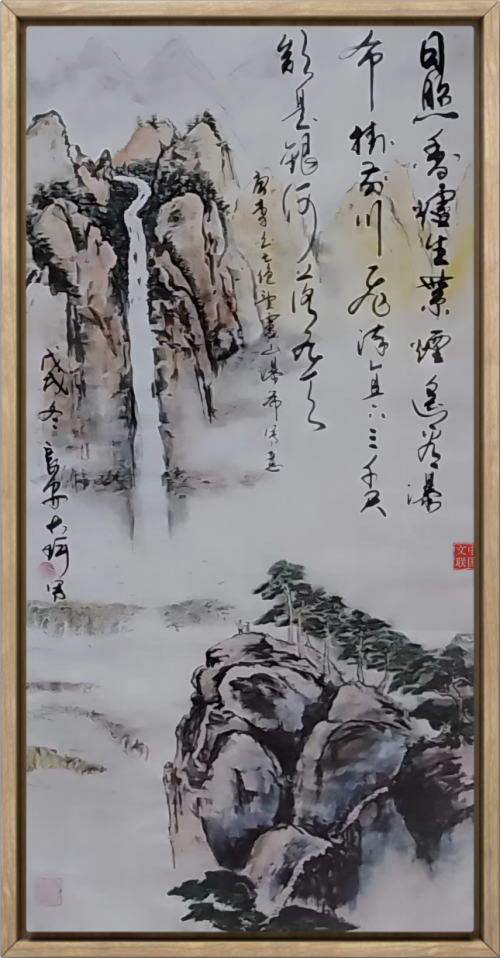 日照香爐生紫煙遙看瀑
布掛前川飛流直下三千尺
疑是銀河落九天
唐李白七绝望廬山瀑布寫意
戊戌冬
中国文联